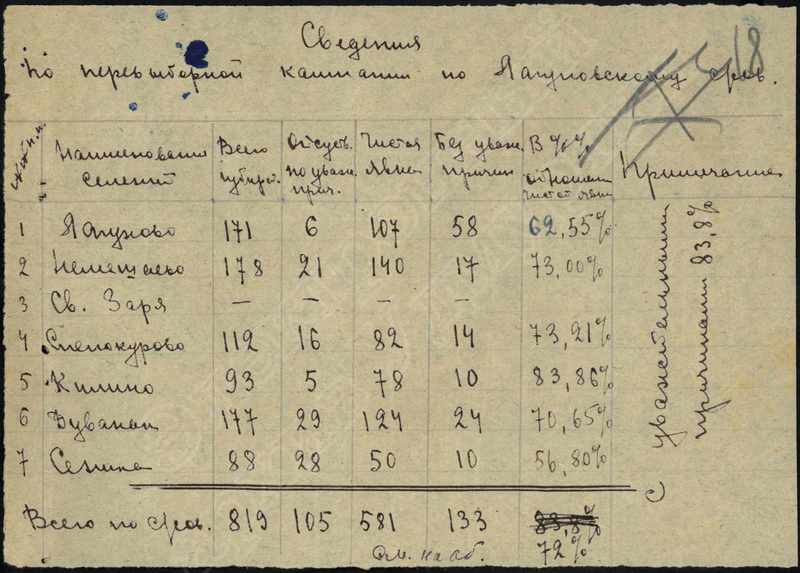 Сведения
по перевыборной кампании по Ягуновскому сров.
18
№№ п.п. Наименование селений Всего избират. Отсутв. по уваж. прич. Чистая явка Без уваж. причин В %% отношении чистой явки Примечание
1 Ягуново 171 6 107 58 62,55%
2 Немешаево 178 21 140 17 73,00%
3 Св. Заря — — — —
4 Смелокурово 112 16 82 14 73,21%
5 Килино 93 5 78 10 83,86%
6 177 29 124 24 70,65%
7 88 28 50 10 56,80%
С уважительными причинами 83,8%
Всего по сров. 819 105 581 133 83,8%
См. на об. 72%